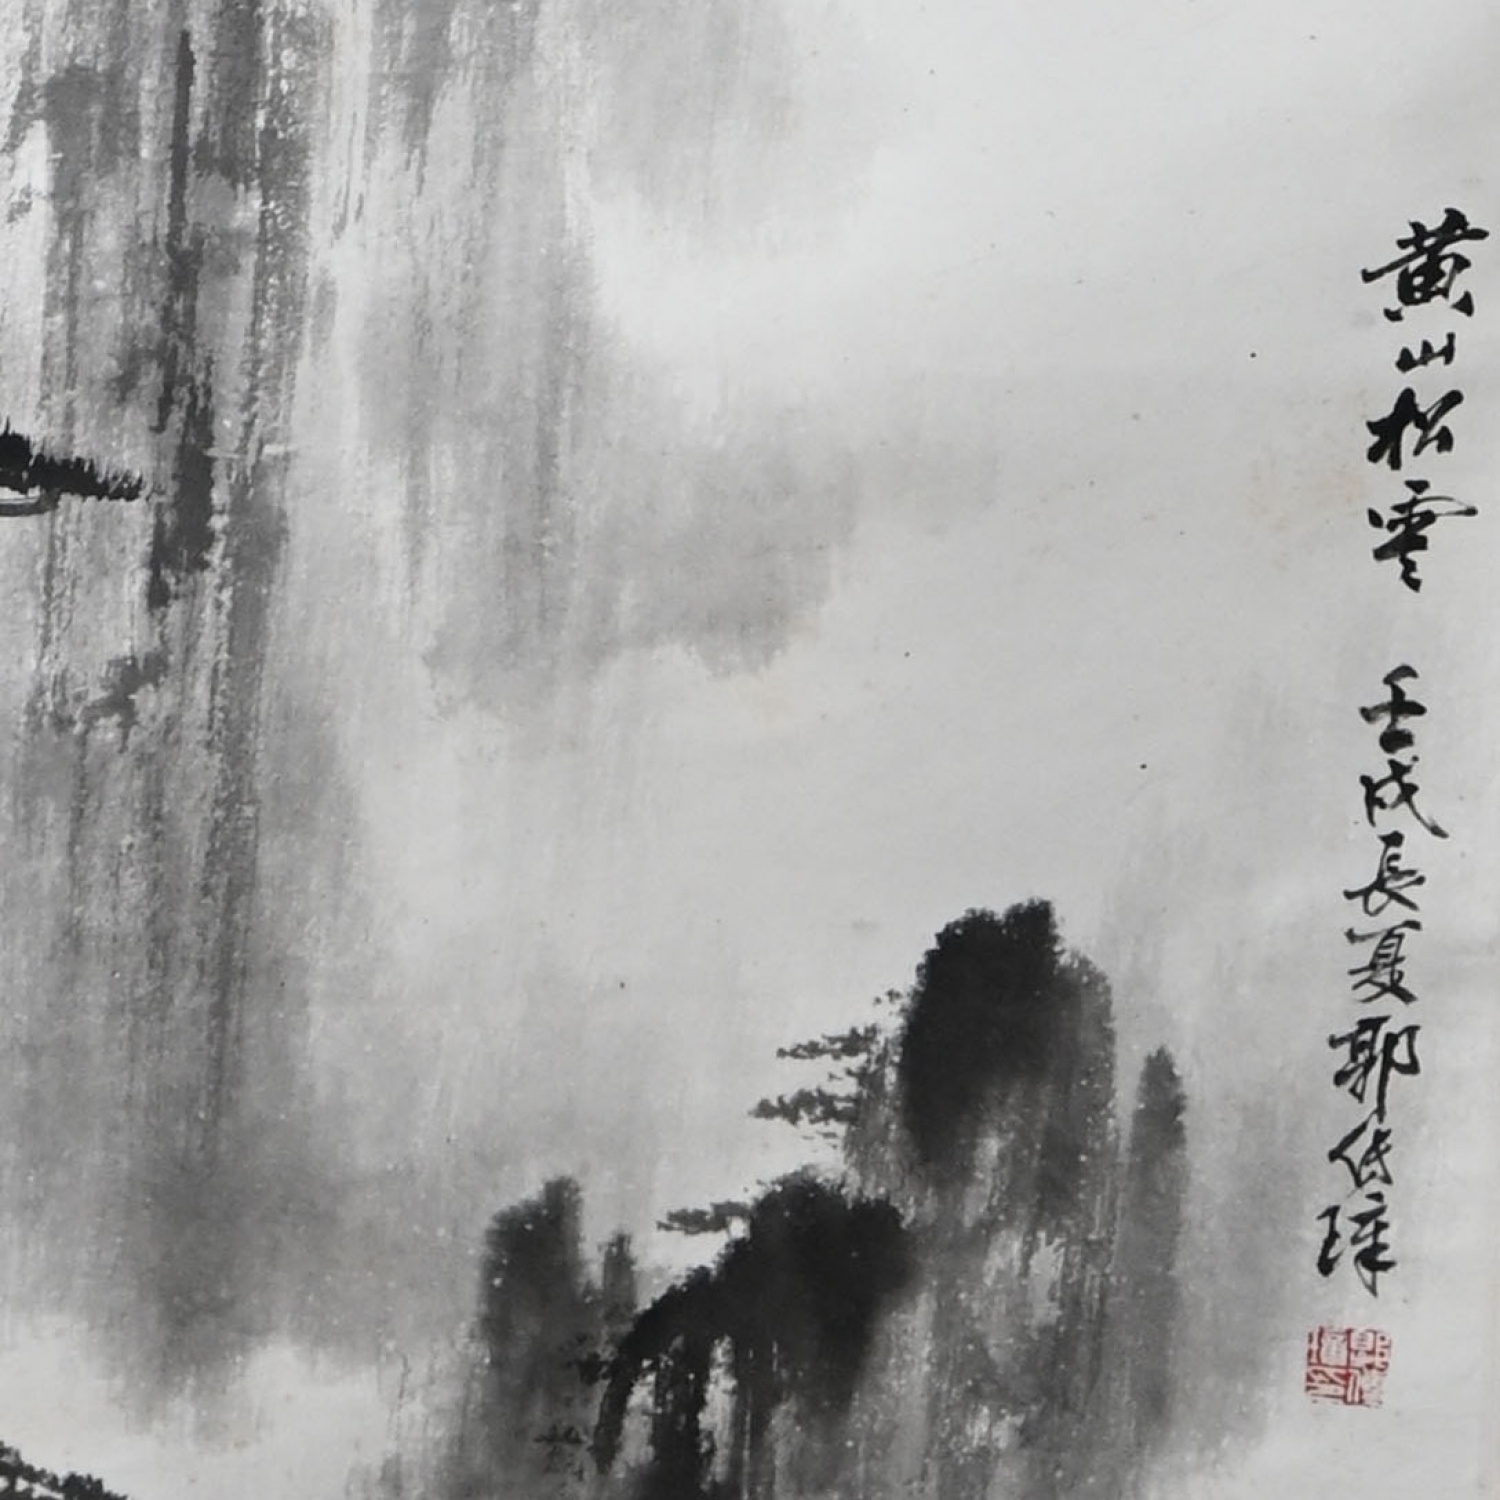 黄山松雲 壬戌長夏郭传璋